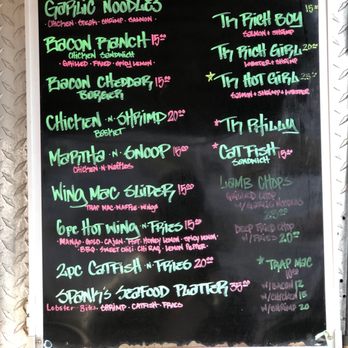 GARLIC NOODLES
· CHICKEN · STEAK · SHRIMP · SALMON ·
BACON RANCH 15.00
CHICKEN SANDWICH
· GRILLED · FRIED · SPICY LEMON
BACON CHEDDAR 15.00
BURGER
CHICKEN N SHRIMP 20.00
BASKET
MARTHA N SNOOP 15.00
CHICKEN N WAFFLES
WING MAC SLIDER 15.00
TRAP MAC · WAFFLE · WINGS
6PC HOT WING N FRIES 15.00
· MANGO · GOLD · CAJUN · HONEY LEMON · SPICY LEMON ·
· BBQ · SWEET CHILI · LEMON PEPPER
2PC CATFISH N FRIES 20.00
SPANK'S SEAFOOD PLATTER 35.00
Lobster Bites SHRIMP · CATFISH · FRIES
TH RICH BOY 15.00
SALMON & SHRIMP
TH RICH GIRL 20.00
LOBSTER & SHRIMP
* TH HOT GIRL 25.00
SALMON & SHRIMP & LOBSTER
* TH PHILLY
* CATFISH 15.00
SANDWICH
LAMB CHOPS
W/GARLIC NOODLES
DEEP FRIED CHOP
W/FRIES
* TRAP MAC
W/BACON 12
W/CHICKEN 15
W/SHRIMP 20